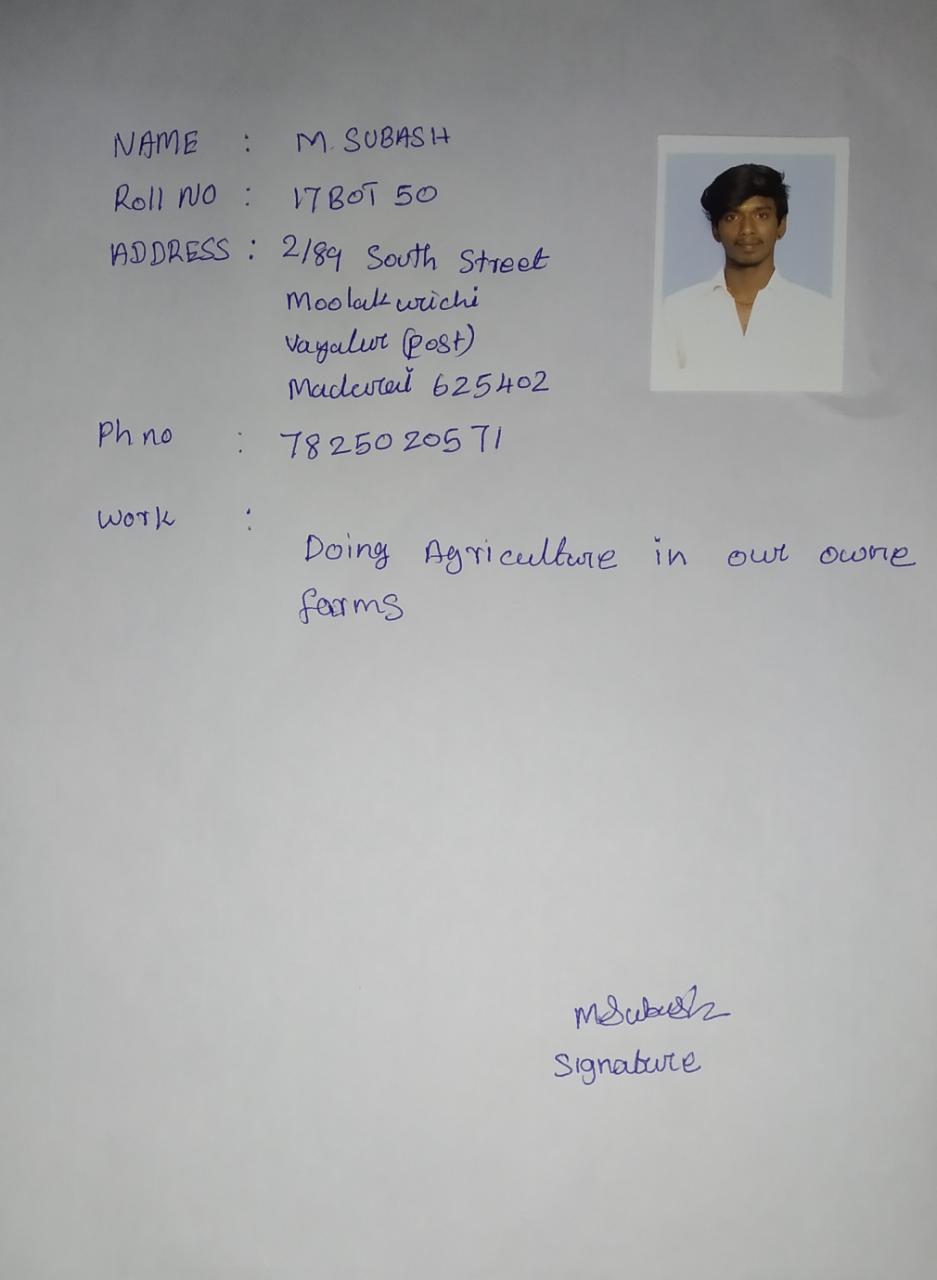 NAME : M. SUBASH
Roll NO : 17 BOT 50
ADDRESS : 2/89 South Street
Moolakurichi
Vayalur (Post)
Madurai 625402
Ph no : 7825020571
Work :
Doing Agriculture in our owne
farms
M Subash
Signature